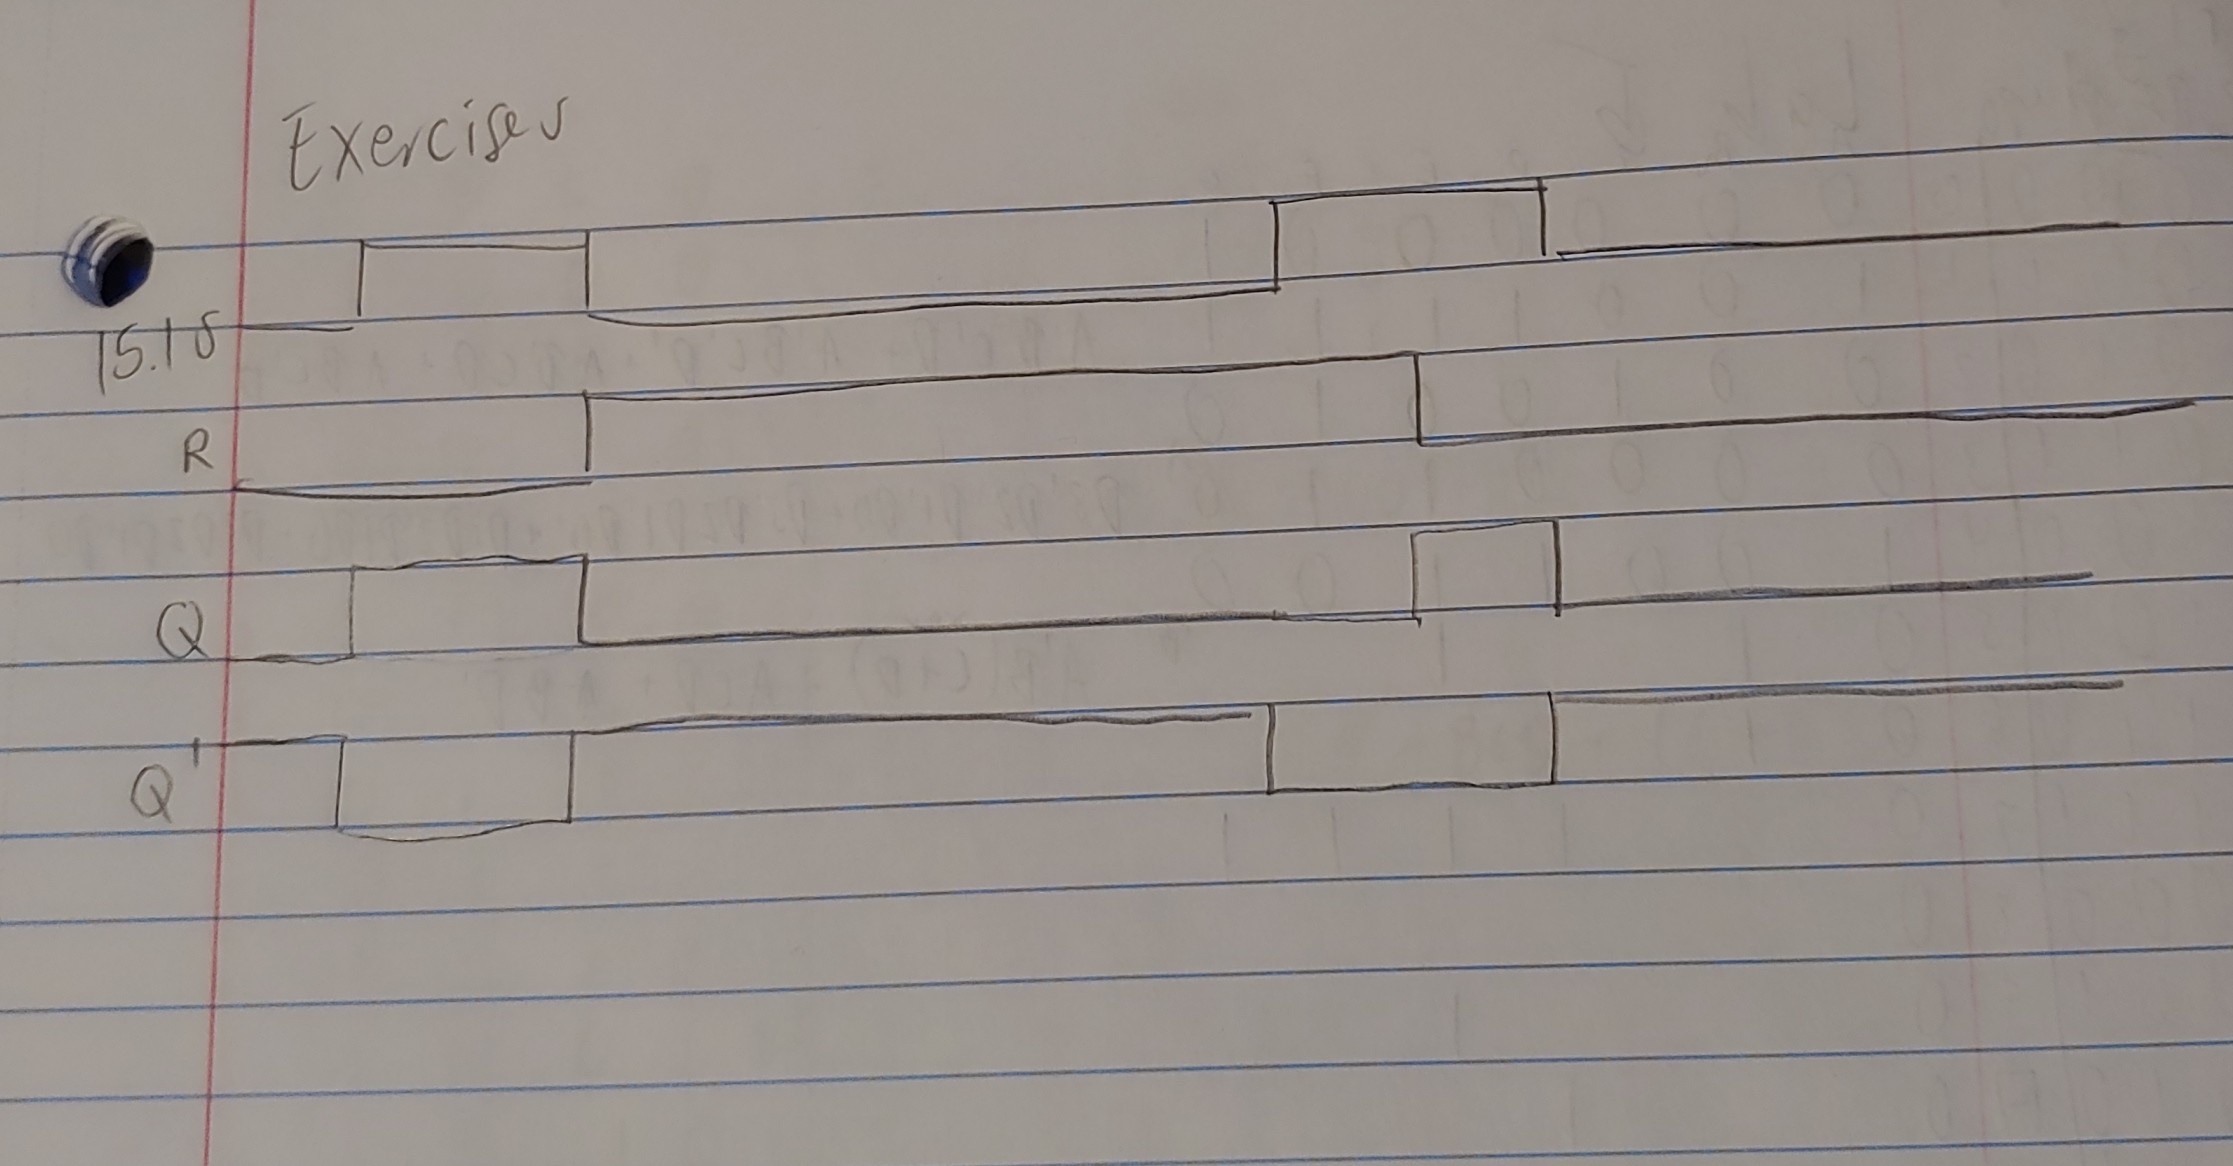 Exercises
15.1 S
R
Q
Q'